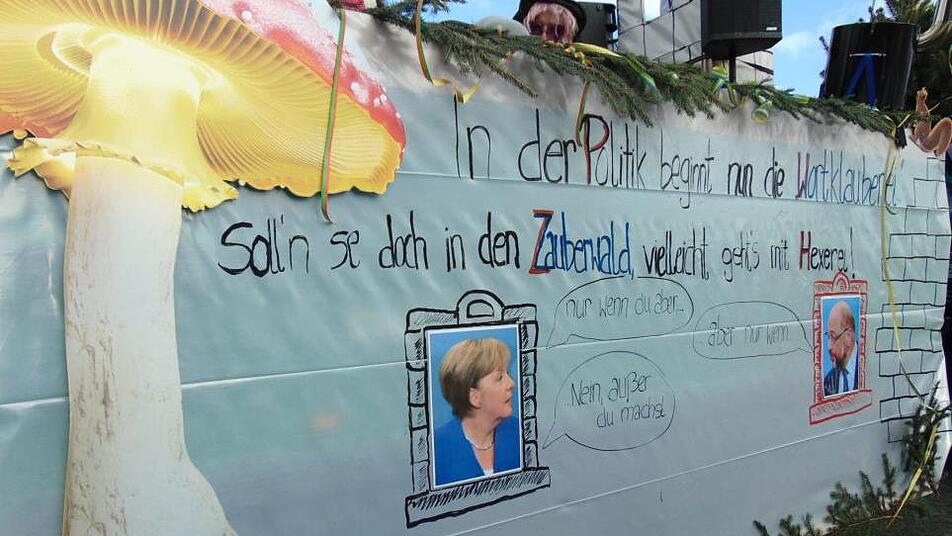 In der Politik beginnt nun die Wortklauberei
Soll'n se doch in den Zauberwald, vielleicht geht's mit Hexerei!
nur wenn du aber...
aber nur wenn
Nein, außer
du machst